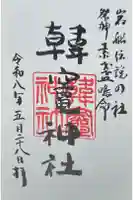 岩船伝説の社
祭神 素盞嗚命
韓竈神社
韓竈神社
令和八年五月二十八日拝